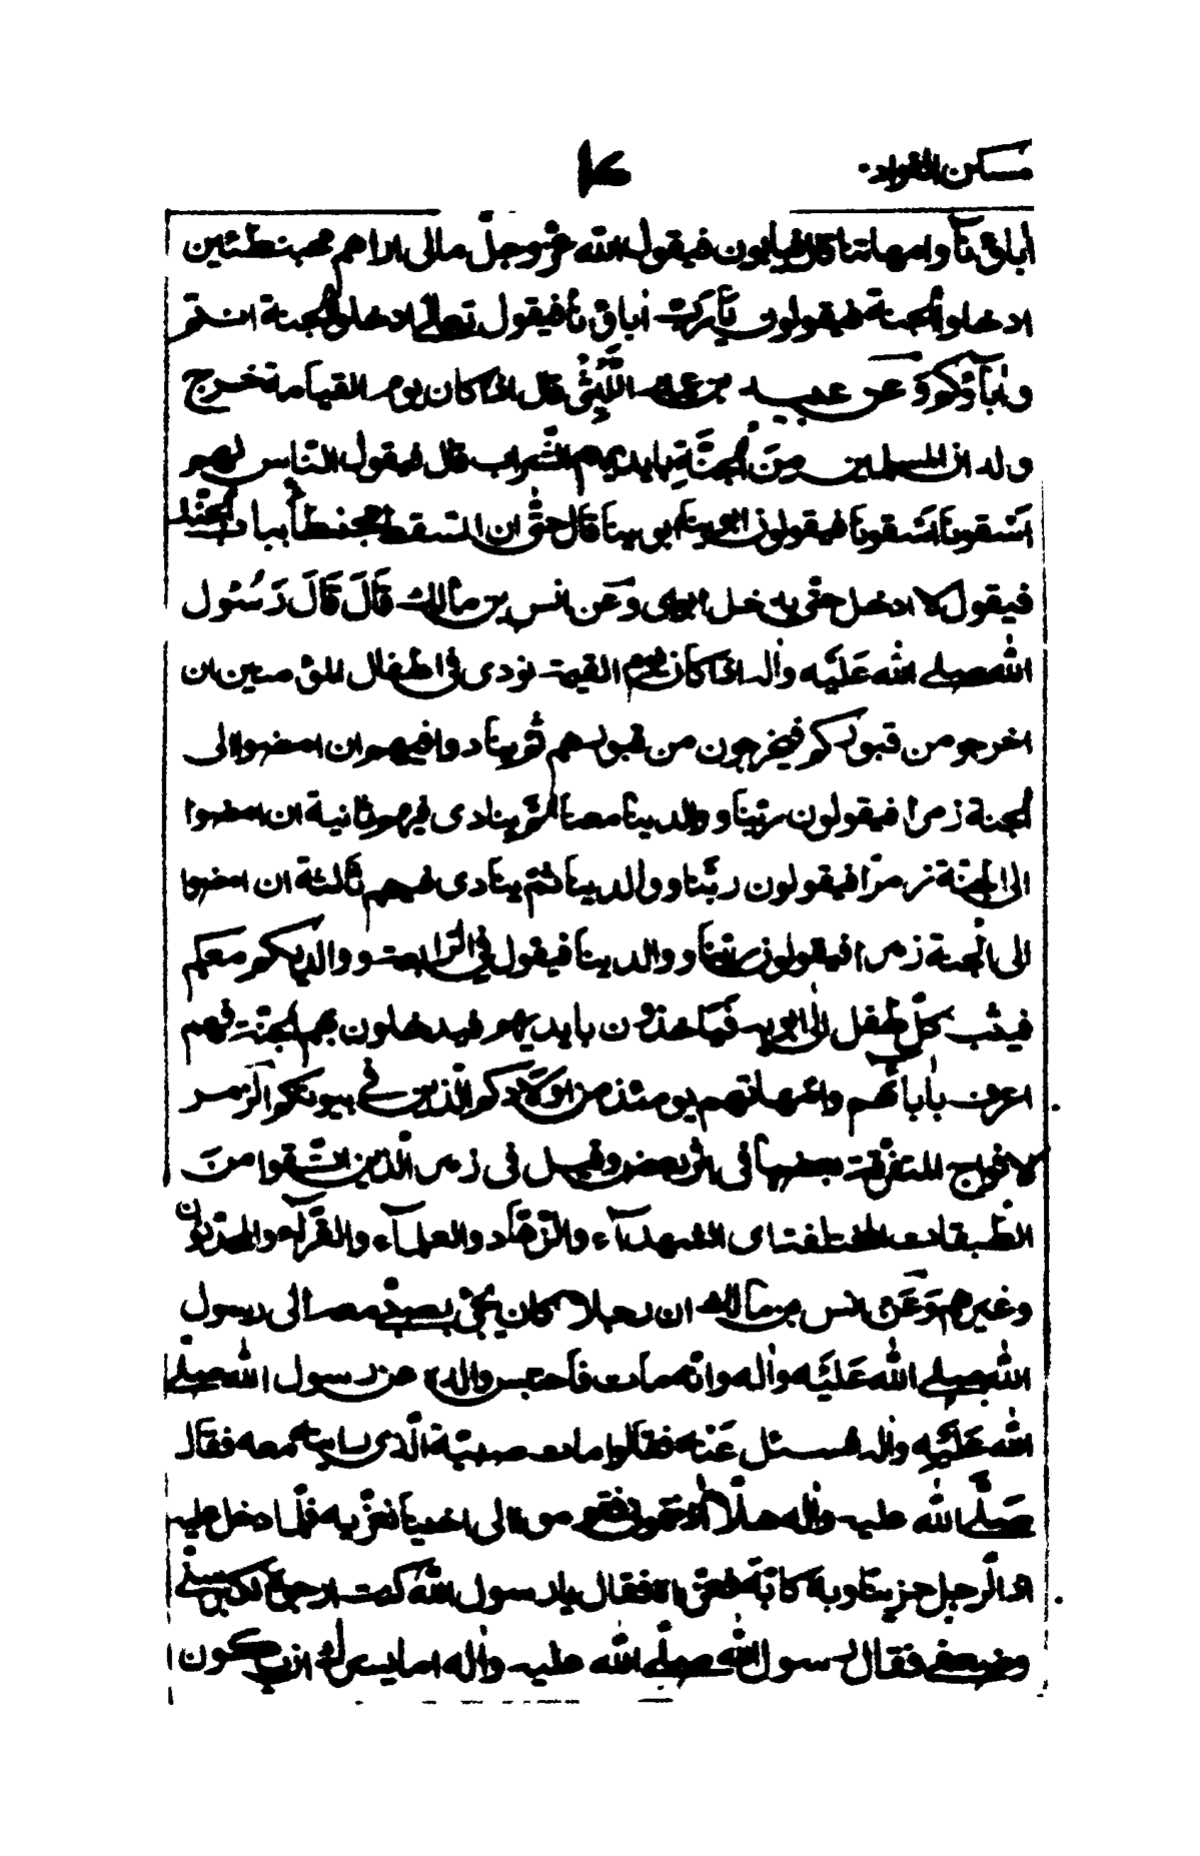 مسكن الفواد
اباؤنا وامهاتنا قال فيابون فيقول الله عز وجل مالى اراهم محبنطئين
ادخلوا الجنة فيقولون يا رب اباؤنا فيقول تعالى ادخلوا الجنة انتم
واباؤكم وعن عبيد بن عمير الليثى قال اذا كان يوم القيامة خرج
ولدان المسلمين من الجنة بايديهم الشراب قال فيقول الناس لهم
اسقونا اسقونا فيقولون ابوينا ابوينا قال حتى ان السقط محبنطأ بباب الجنة
فيقول لا ادخل حتى يدخل ابواى وعن انس بن مالك قال قال رسول
الله صلى الله عليه واله اذا كان يوم القيمة نودى فى اطفال المؤمنين ان
اخرجو من قبوركم فيخرجون من قبورهم ثم ينادوا فيهم ان امضوا الى
الجنة زمرا فيقولون ربنا ووالدينا معنا ثم ينادى فيهم ثانية ان امضوا
الى الجنة زمرا فيقولون ربنا ووالدينا ثم ينادى فيهم ثالثة ان امضوا
الى الجنة زمرا فيقولون ربنا ووالدينا فيقول فى الرابعة ووالديكم معكم
فيثب كل طفل الى ابويه فياخذون بايديهم فيدخلون بهم الجنة فهم
اعرف بابائهم وامهاتهم يومئذ من اولادكم الذين فى بيوتكم الزمر
لافواج المتفرقة بعضها فى اثر بعض وقيل فى زمر الذين اتقوا من
الطبقات المختلفة اى الشهداء والزهاد والعلماء والقراء والمحدثون
وغيرهم وعن انس بن مالك ان رجلا كان يجئ بصبى معه الى رسول
الله صلى الله عليه واله وانه مات فاحتبس والده عن رسول الله صلى
الله عليه واله فسئل عنه فقالوا مات صبيه الذى رايته معه فقال
صلى الله عليه واله هلا اذنتمونى فقوموا الى اخينا نعزيه فلما دخل عليه
اذا الرجل حزينا وبه كابة فعزاه فقال يا رسول الله كنت ارجوه لكبر سنى
وضعفى فقال رسول الله صلى الله عليه واله اما يسرك ان يكون